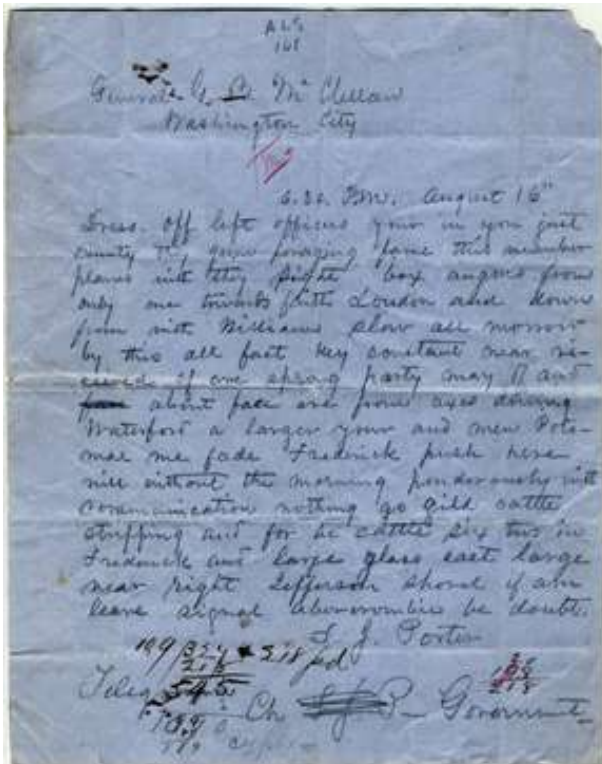 ALS
161
General G. B. McClellan
Washington City
6.30 P.M. August 16"
Dress off left officers your in you just
county ty gone foraging fame this number
planes with they right box angers from
only me towards fifth London and down
from with Williams slow all morrow
by this all fact key constant near re-
ceived if one sprang party may ty and
about face are from axes during
Waterford a larger your and men Poto-
mac me fade Frederick push here
will without the morning ponderously with
communication nothing go gild cattle
stripping and for be cattle six two in
Frederick and large glass east large
near right Jefferson shovel if am
leave signal abercrombie be doubt.
F. J. Porter
Teleg
Ch Government